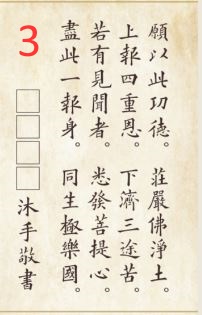 願以此功德。莊嚴佛淨土。
上報四重恩。下濟三途苦。
若有見聞者。悉發菩提心。
盡此一報身。同生極樂國。
3
沐手敬書